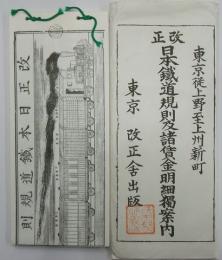 東京従上野至上州新町
改正
日本鐵道規則及諸賃金明細獨案内
東京 改正舎出版
改正日本鐵道規則